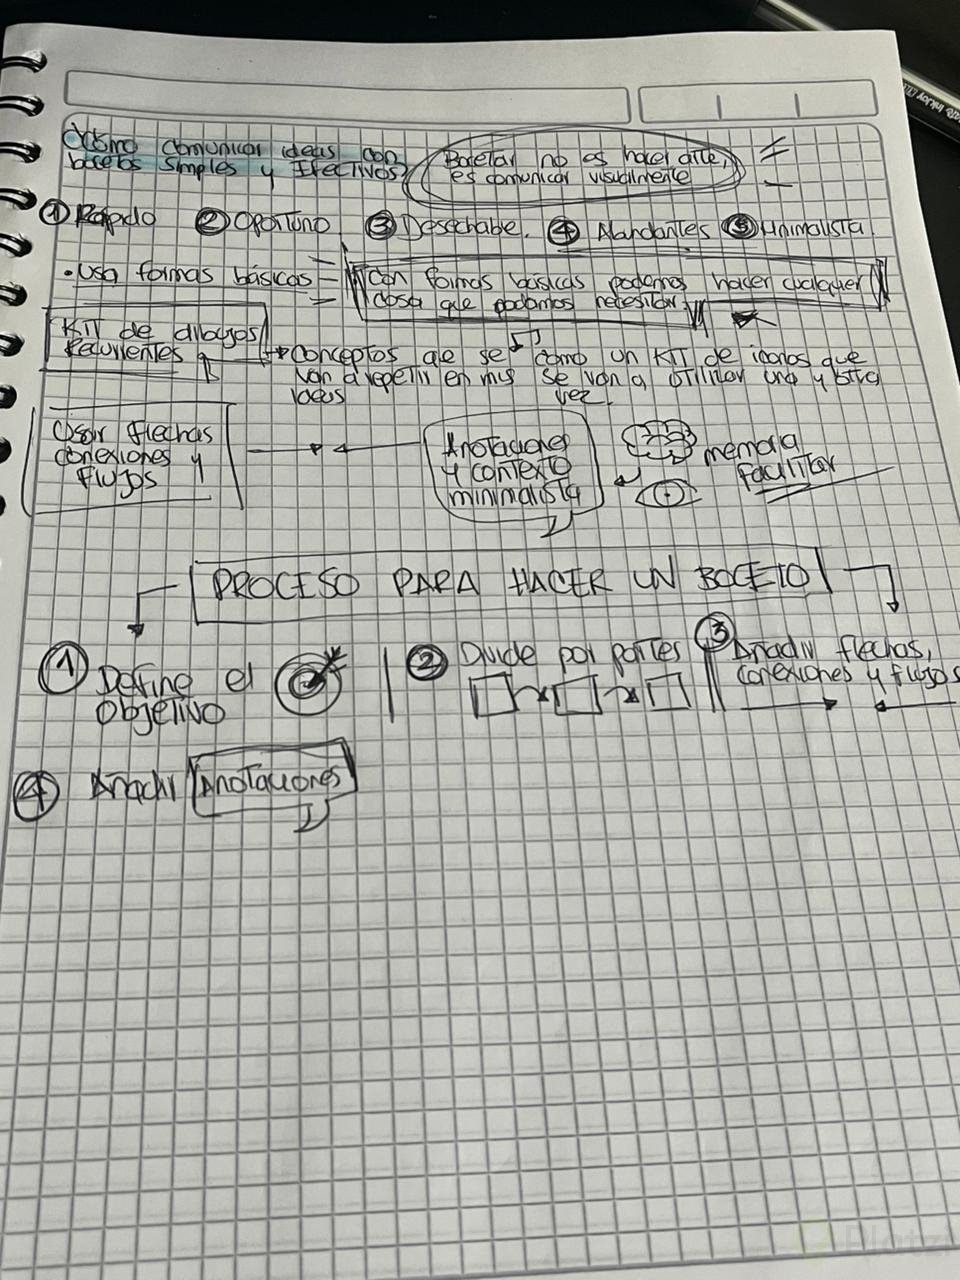 Cómo comunicar ideas con
bocetos simples y Efectivos
Bocetar no es hacer arte,
es comunicar visualmente
① Rápido ② Oportuno ③ Desechable. ④ Abundantes ⑤ Minimalista
• Usa formas básicas
Con formas básicas podemos hacer cualquier
cosa que podamos necesitar.
KIT de dibujos
Recurrentes
Conceptos que se
van a repetir en mis
ideas
como un KIT de iconos que
se van a utilizar una y otra
vez.
Usar flechas
conexiones y
flujos
Anotaciones
y contexto
minimalista
memoria
facilitar
PROCESO PARA HACER UN BOCETO
① Define el
objetivo
② Divide por partes
③ Añadir flechas,
conexiones y flujos
④ Añadir Anotaciones
Platzi